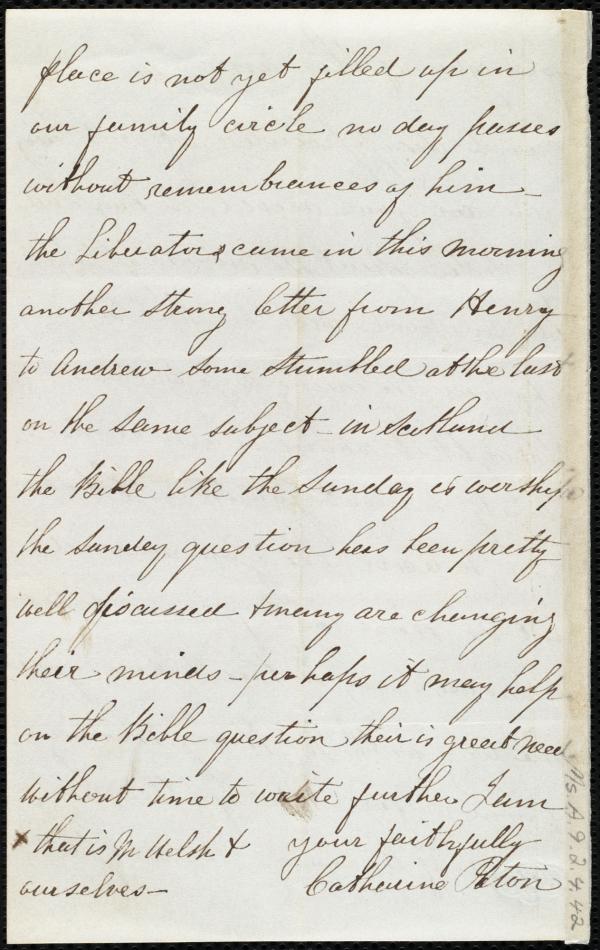 place is not yet filled up in
our family circle no day passes
without remembrances of him
the Liberators came in this morning
another strong letter from Henry
to Andrew some stumbled at the last
on the same subject - in Scotland
the Bible like the Sunday is worship
the Sunday question has been pretty
well discussed & many are changing
their minds - perhaps it may help
on the Bible question their is great need
without time to write further I am
x that is M Welsh & your faithfully
ourselves - Catharine Paton
Ms.A.9.2.4.42